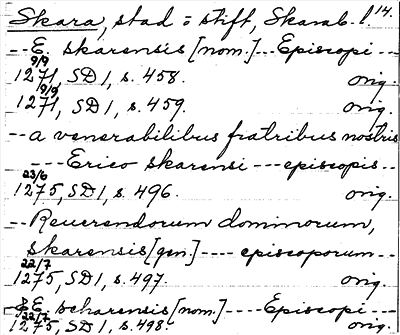 Skara, stad o stift, Skarab. l. 14.
--E. skarensis [nom.]--Episcopi--
9/9
1271, SD 1, s. 458. orig.
9/9
1271, SD 1, s. 459. orig.
--a venerabilibus fratribus nostris
----Erico skarensi---episcopis--
23/6
1275, SD 1, s. 496. orig.
--Reuerendorum dominorum,
skarensis [gen.]---- episcoporum--
22/7
1275, SD 1, s. 497. orig.
E. scharensis [nom.]----Episcopi---
22/7
1275, SD 1, s. 498. orig.